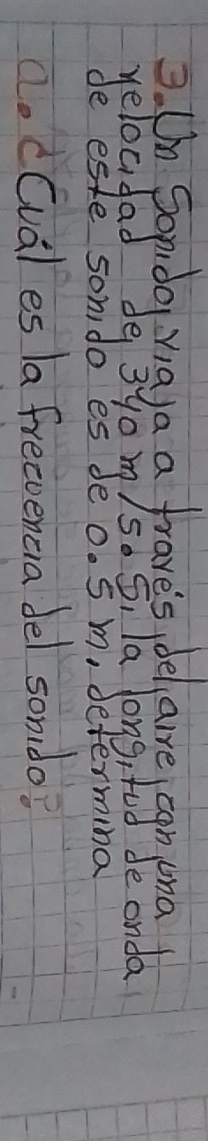 3. Un Sonido viaja a través del aire con una
velocidad de 340 m/s. Si la longitud de onda
de este sonido es de 0.5 m, determina
a. ¿Cuál es la frecuencia del sonido?